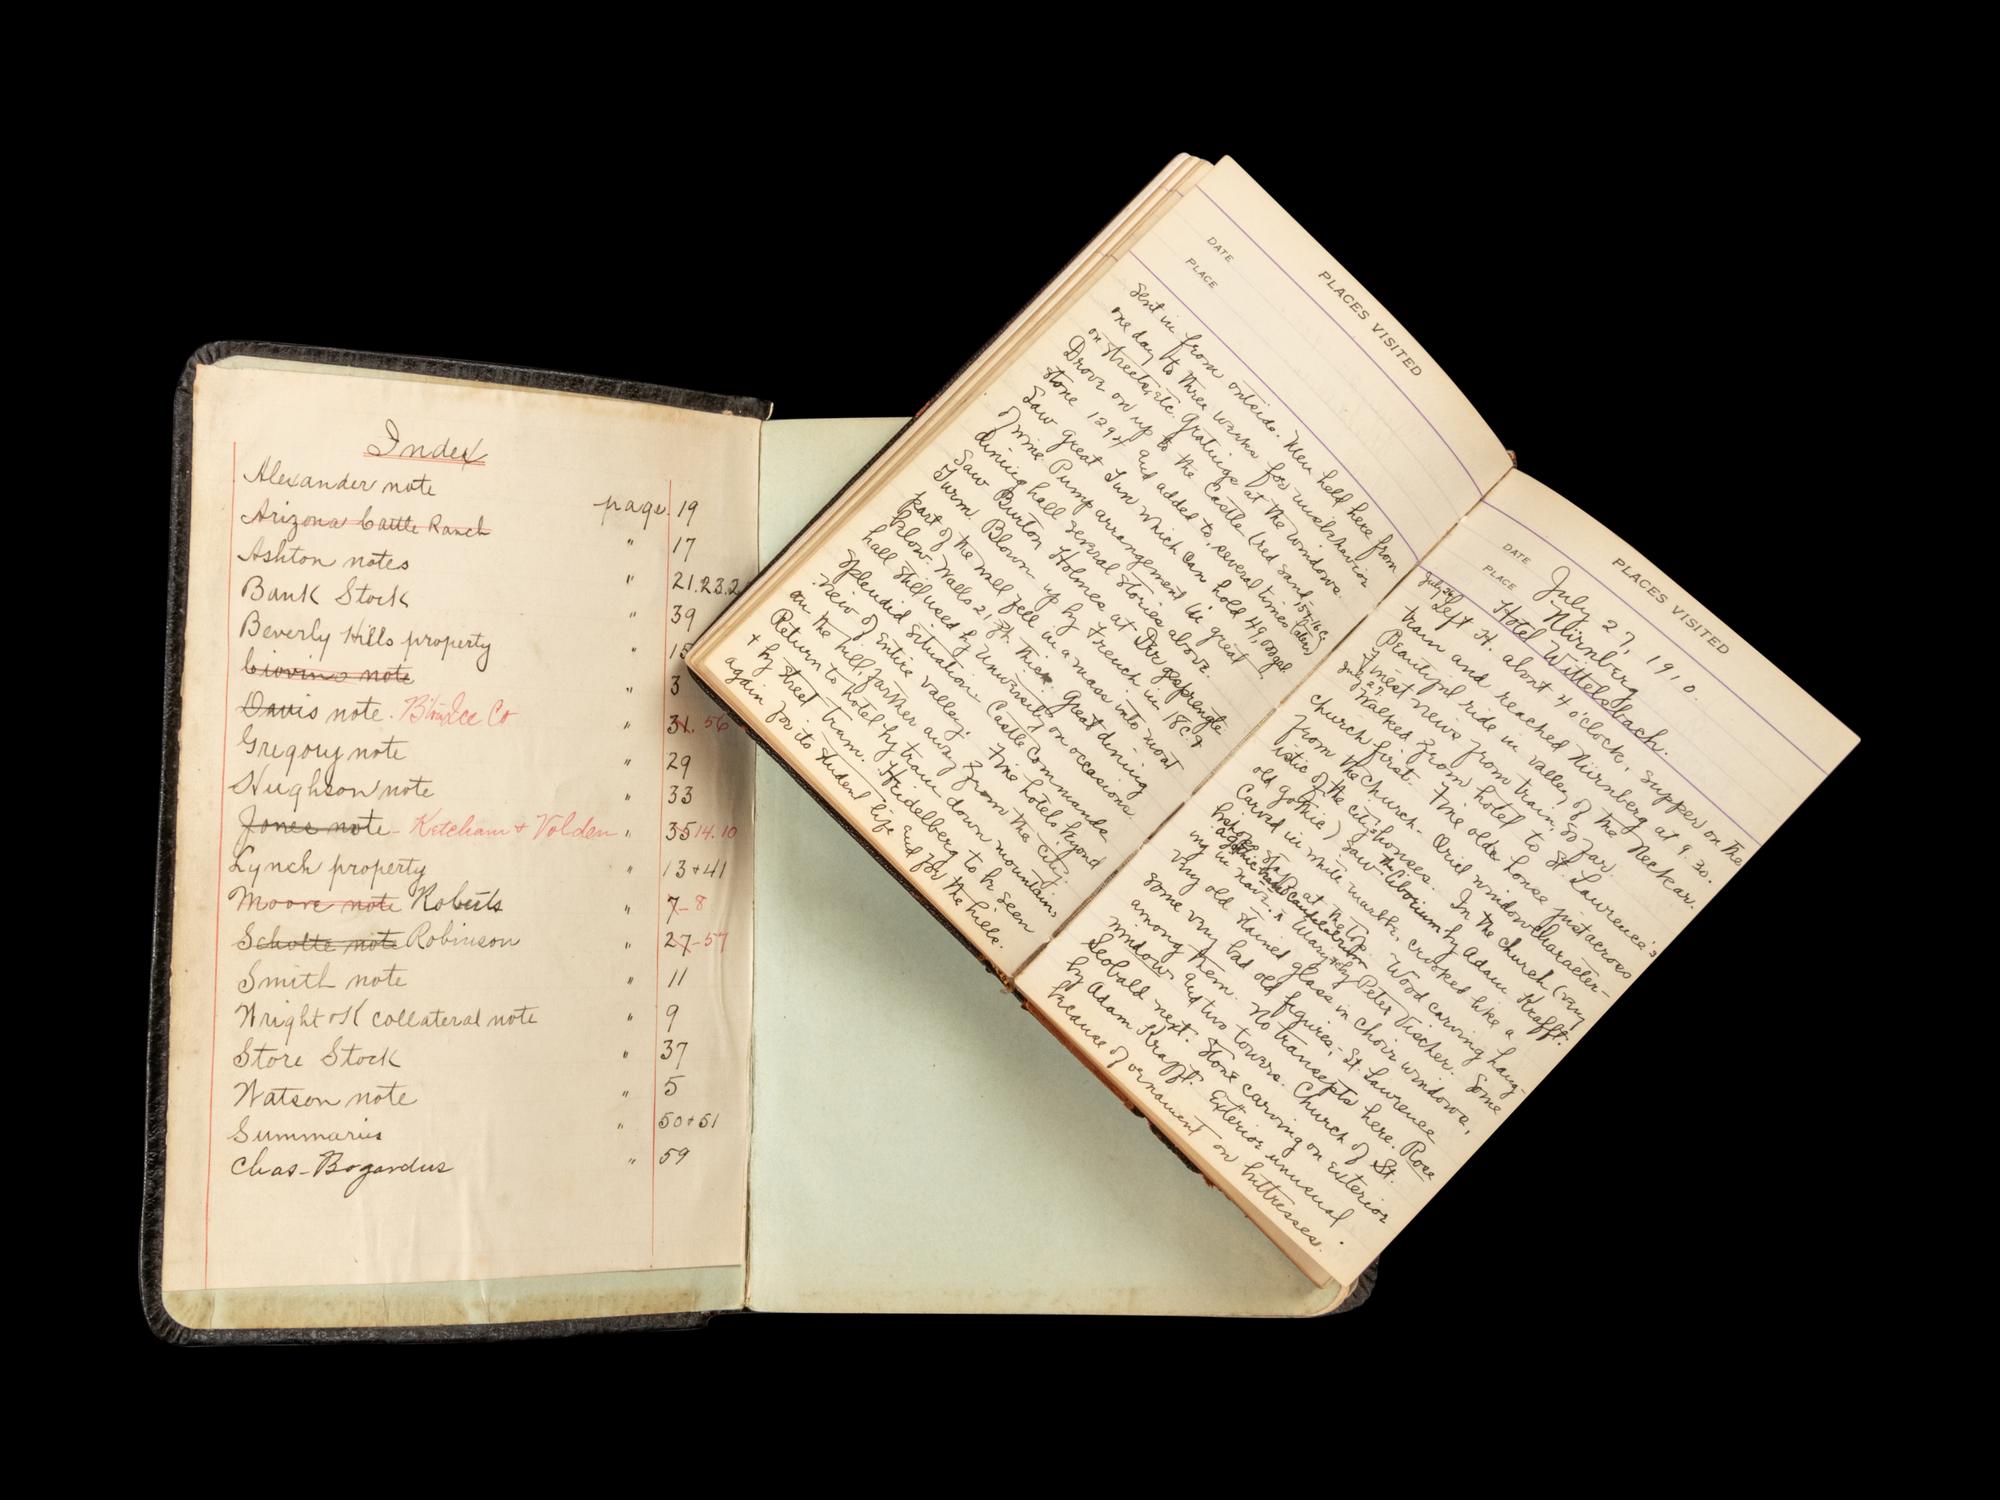 Index
Alexander note page. 19
Arizona Cattle Ranch " 17
Ashton notes " 21.23.2
Bank Stock " 39
Beverly Hills property " 15
note " 3
Davis note. Co " 31. 56
Gregory note " 29
Hughson note " 33
Jones note - Ketcham + Volden " 35 14.10
Lynch property " 13+41
Moore note Roberts " 7-8
Scholte note Robinson " 27-57
Smith note " 11
Wright + K collateral note " 9
Store Stock " 37
Watson note " 5
Summaries " 50+51
Chas. Bogardus " 59
PLACES VISITED
DATE
PLACE
sent in from outside. Men held here from
one day to three weeks for misbehavior
on streets, etc. Gratings at the windows.
Drove on up to the Castle (red sand
stone 1294 and added to, several times 15+16 c. later)
Saw great Tun which can hold 49,000 gal.
of wine. Pump arrangement in great
dining hall several stories above.
Saw Burton Holmes at Der gesprengte
Turm. Blown up by French in 18c. &
part of the wall fell in a mass into moat
below. Walls 21 ft. thick. Great dining
hall still used by University on occasions.
Splendid situation. Castle commands
view of entire valley. Fine hotels beyond
on the hill, farther away from the city.
Return to hotel by tram down mountain,
+ by street tram. Heidelberg to be seen
again for its student life and for the hills.
PLACES VISITED
DATE July 27, 1910.
PLACE Nürnberg
Hotel Wittelsbach.
Left H. about 4 o'clock, supper on the
train and reached Nürnberg at 9.30.
Beautiful ride in valley of the Neckar.
Finest views from train, so far.
July 27. Walked from hotel to St. Lawrence's
church first. Fine olde house just across
from the church. Oriel window character-
istic of the city houses. In the church (very
old gothic) saw the Ciborium by Adam Krafft.
Carved in white marble, crooked like a
at the top. Wood carving hang-
ing in nave. Peter Vischer. Some
very old stained glass in choir windows,
some very bad old figures, St. Lawrence
among them. No transepts here. Rose
window and two towers. Church of St.
Sebald next. Stone carving on exterior
by Adam Krafft. Exterior unusual
because of ornament on buttresses.